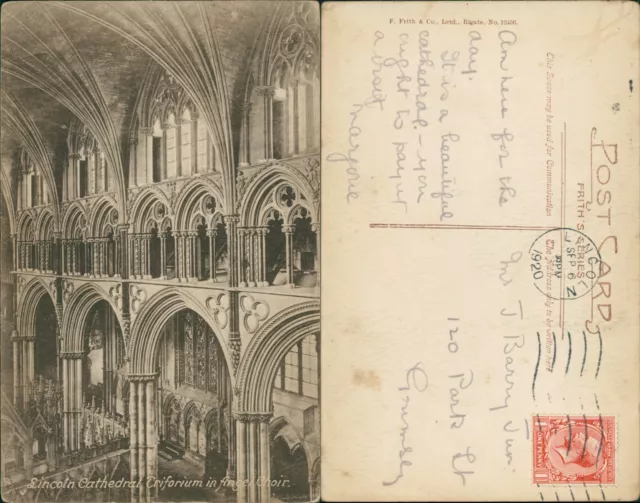 Lincoln Cathedral, Triforium in Angel Choir.
F. Frith & Co., Ltd., Reigate, No. 12406.
POST CARD
FRITH'S SERIES
This Space may be used for Communication
The Address to be written here
Am here for the
day.
It is a beautiful
cathedral – you
ought to pay it
a visit
Marjorie
LINCOLN
SP 6
1920
Mr J Barry Jun.
120 Park St
Grimsby
ONE PENNY